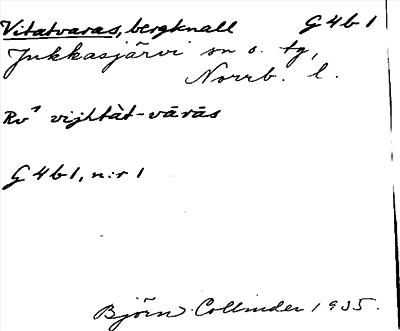 Vitatvaras, bergknall G4b1
Jukkasjärvi sn o. tg,
Norrb. l.
Rv¹ vijhtàt-vārās
G4b1, n:r 1
Björn Collinder 1935.